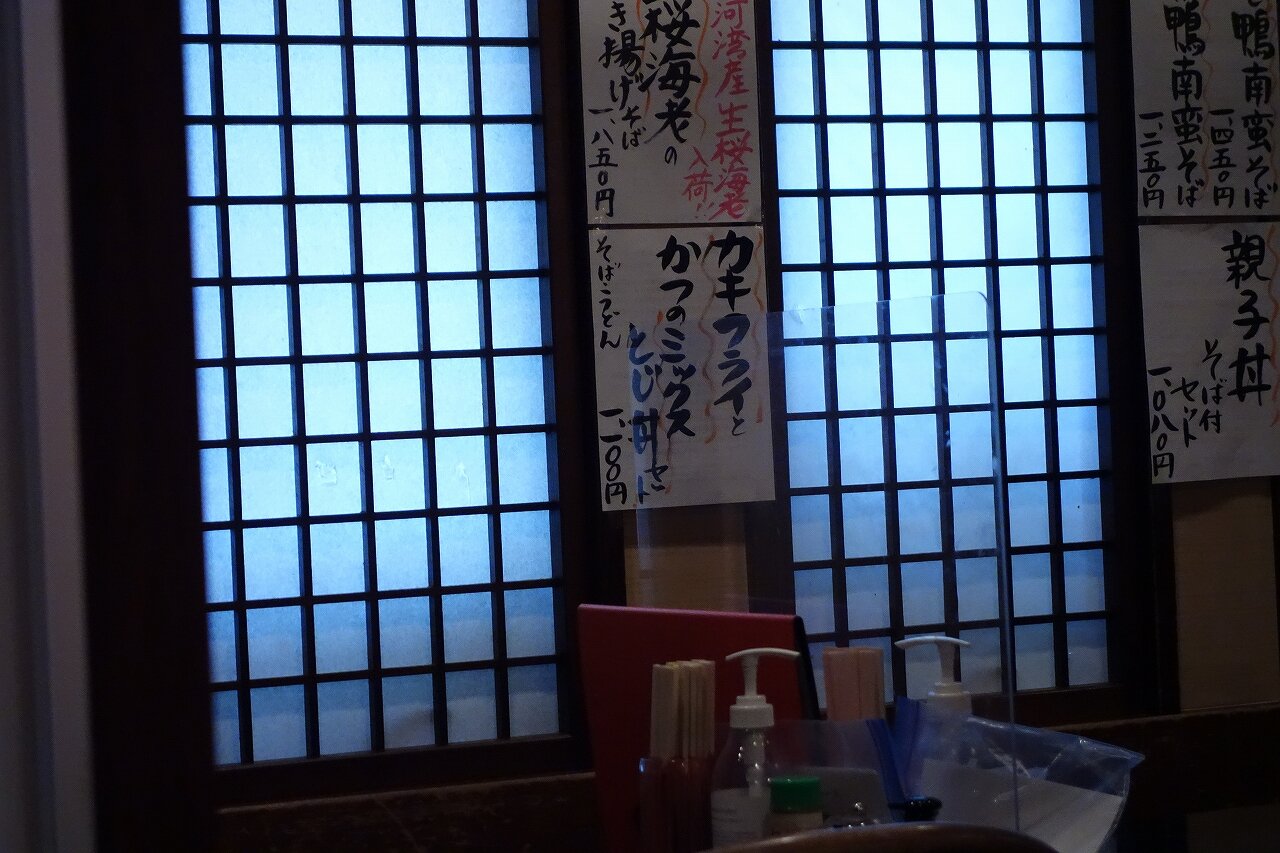 河湾産生桜海老
入荷!!
桜海老の
き揚げそば
一、八五〇円
カキフライと
かつのミックス
とじ丼セット
そば・うどん
一、一〇〇円
鴨南蛮そば
一四五〇円
鴨南蛮そば
一二五〇円
親子丼
そば付
セット
一、〇八〇円